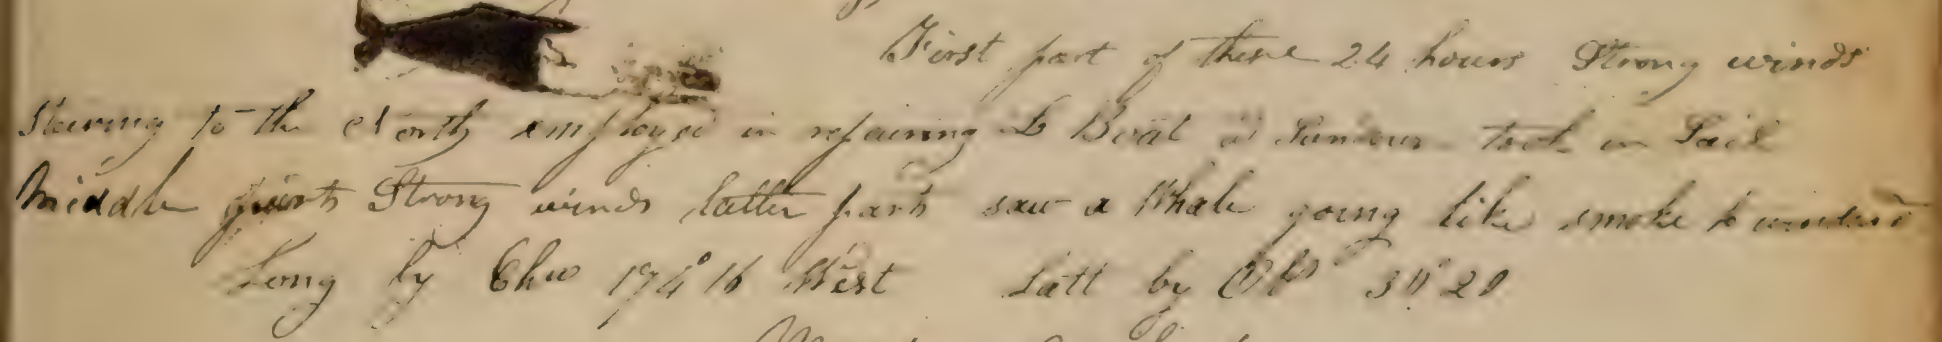 First part of these 24 hours Strong winds
Steering to the North employed in repairing L Boat at Sundown took in Sail
Middle parts Strong winds latter parts saw a Whale going like smoke to windard
Long by Chro 174° 16 West Latt by Ob